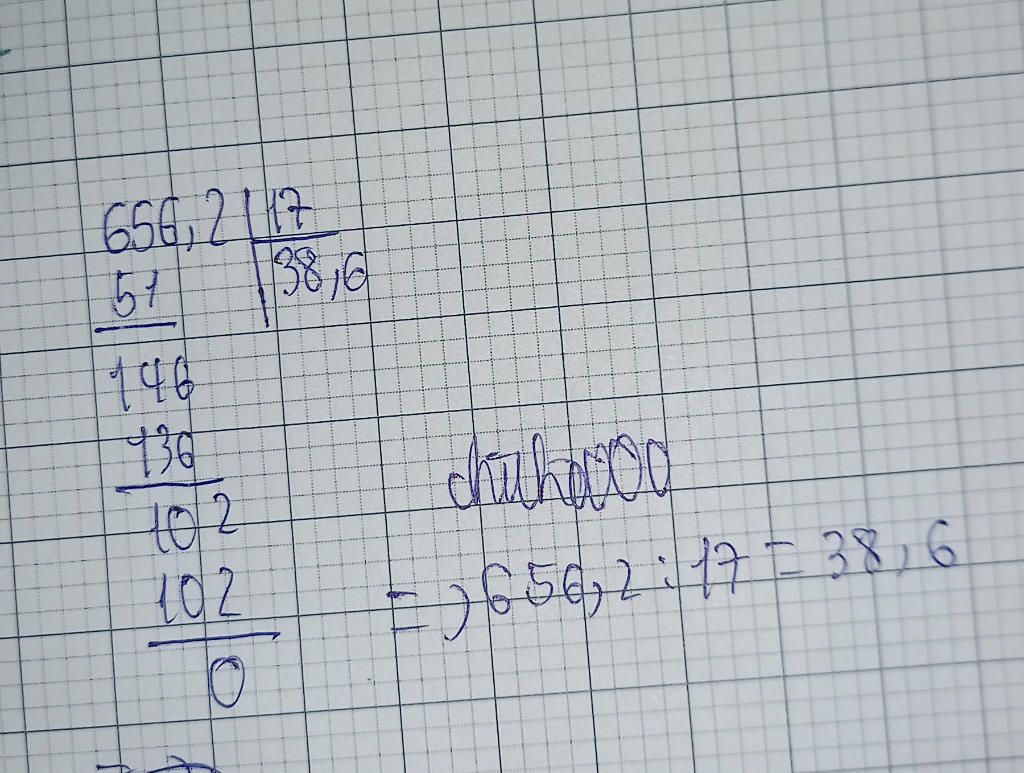 656,2 | 17
51 | 38,6
146
136
102
102
0
=> 656,2 : 17 = 38,6